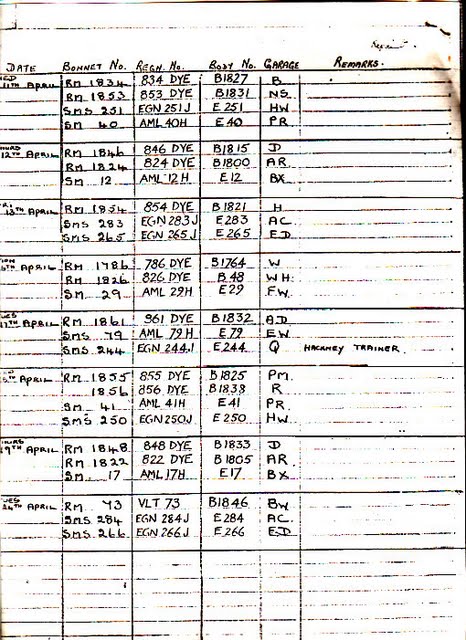 DATE BONNET No. REGN. No. BODY No. GARAGE REMARKS.
11TH APRIL RM 1834 834 DYE B1827 B
RM 1853 853 DYE B1831 NS
SMS 251 EGN 251J E 251 HW
SM 40 AML 40H E 40 PR
12TH APRIL RM 1846 846 DYE B1815 D
RM 1824 824 DYE B1800 AR
SM 12 AML 12H E12 BX
13TH APRIL RM 1854 854 DYE B1821 H
SMS 283 EGN 283J E283 AC
SMS 265 EGN 265J E 265 ED
APRIL RM 1786 786 DYE B1764 W
RM 1826 826 DYE B 48 WH
SM 29 AML 29H E29 FW
17TH APRIL RM 1861 961 DYE B1832 AD
SMS 79 AML 79H E 79 EW
SMS 244 EGN 244J E244 Q HACKNEY TRAINER
APRIL RM 1855 855 DYE B1825 PM
1856 856 DYE B1838 R
SM 41 AML 41H E 41 PR
SMS 250 EGN 250J E 250 HW
19TH APRIL RM 1848 848 DYE B1833 D
RM 1822 822 DYE B1805 AR
SM 17 AML 17H E17 BX
24TH APRIL RM 73 VLT 73 B1846 BW
SMS 284 EGN 284J E 284 AC
SMS 266 EGN 266J E 266 ED